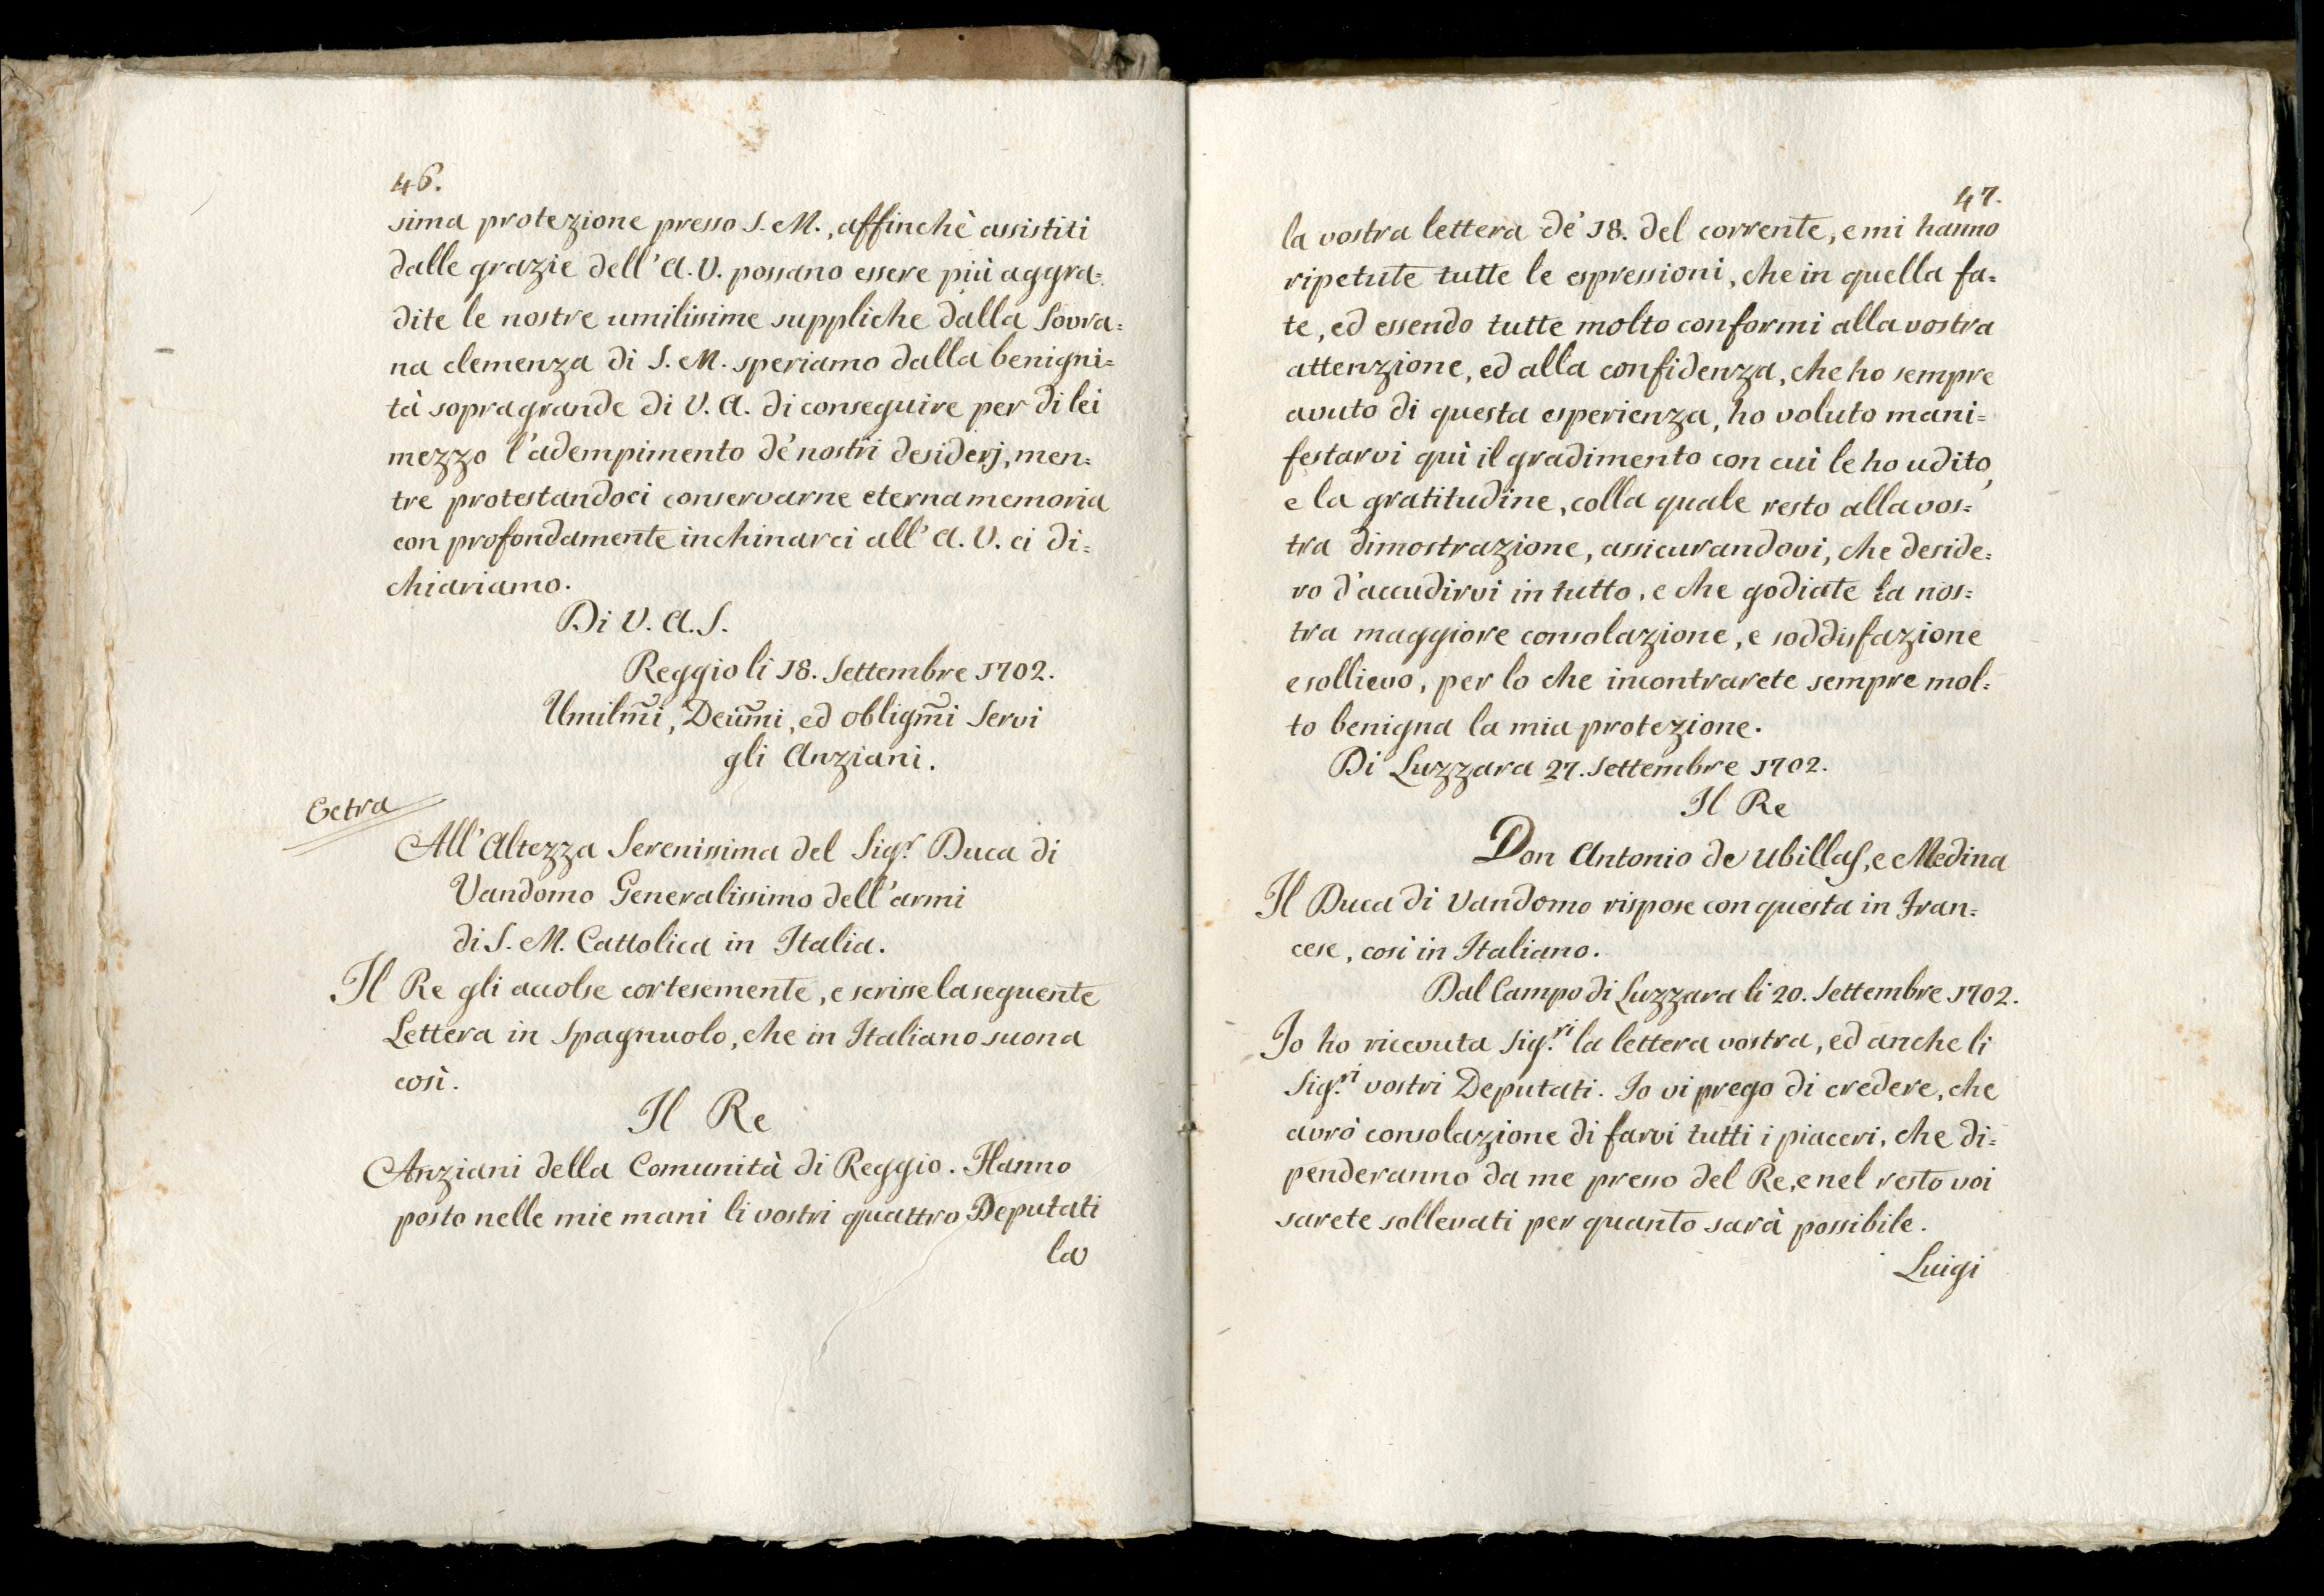 46.
sima protezione presso S. M., affinchè assistiti
dalle grazie dell' A. V. possano essere più aggra=
dite le nostre umilissime suppliche dalla Sovra=
na clemenza di S. M. speriamo dalla benigni=
tà sopragrande di V. A. di conseguire per di lei
mezzo l'adempimento de' nostri desiderj, men=
tre protestandoci conservarne eterna memoria
con profondamente inchinarci all' A. V. ci di=
chiariamo.
Di V. A. S.
Reggio li 18. Settembre 1702.
Umilm̃i, Deũmi, ed obligm̃i Servi
gli Anziani.
Extra
All' Altezza Serenissima del Sig.r Duca di
Vandomo Generalissimo dell' armi
di S. M. Cattolica in Italia.
Il Re gli accolse cortesemente, e scrisse la seguente
Lettera in Spagnuolo, che in Italiano suona
così.
Il Re
Anziani della Comunità di Reggio. Hanno
posto nelle mie mani li vostri quattro Deputati
la
47.
la vostra lettera de' 18. del corrente, e mi hanno
ripetute tutte le espressioni, che in quella fa=
te, ed essendo tutte molto conformi alla vostra
attenzione, ed alla confidenza, che ho sempre
avuto di questa esperienza, ho voluto mani=
festarvi quì il gradimento con cui le ho udito,
e la gratitudine, colla quale resto alla vos=
tra dimostrazione, assicurandovi, che deside=
ro d'accudirvi in tutto, e che godiate la nos=
tra maggiore consolazione, e soddisfazione
e sollievo, per lo che incontrarete sempre mol=
to benigna la mia protezione.
Di Luzzara 27. Settembre 1702.
Il Re
Don Antonio de Ubillas, e Medina
Il Duca di Vandomo rispose con questa in Fran=
cese, così in Italiano.
Dal Campo di Luzzara li 20. Settembre 1702.
Io ho ricevuta Sig.ri la lettera vostra, ed anche li
Sig.ri vostri Deputati. Io vi prego di credere, che
avrò consolazione di farvi tutti i piaceri, che di=
penderanno da me presso del Re, e nel resto voi
sarete sollevati per quanto sarà possibile.
Luigi